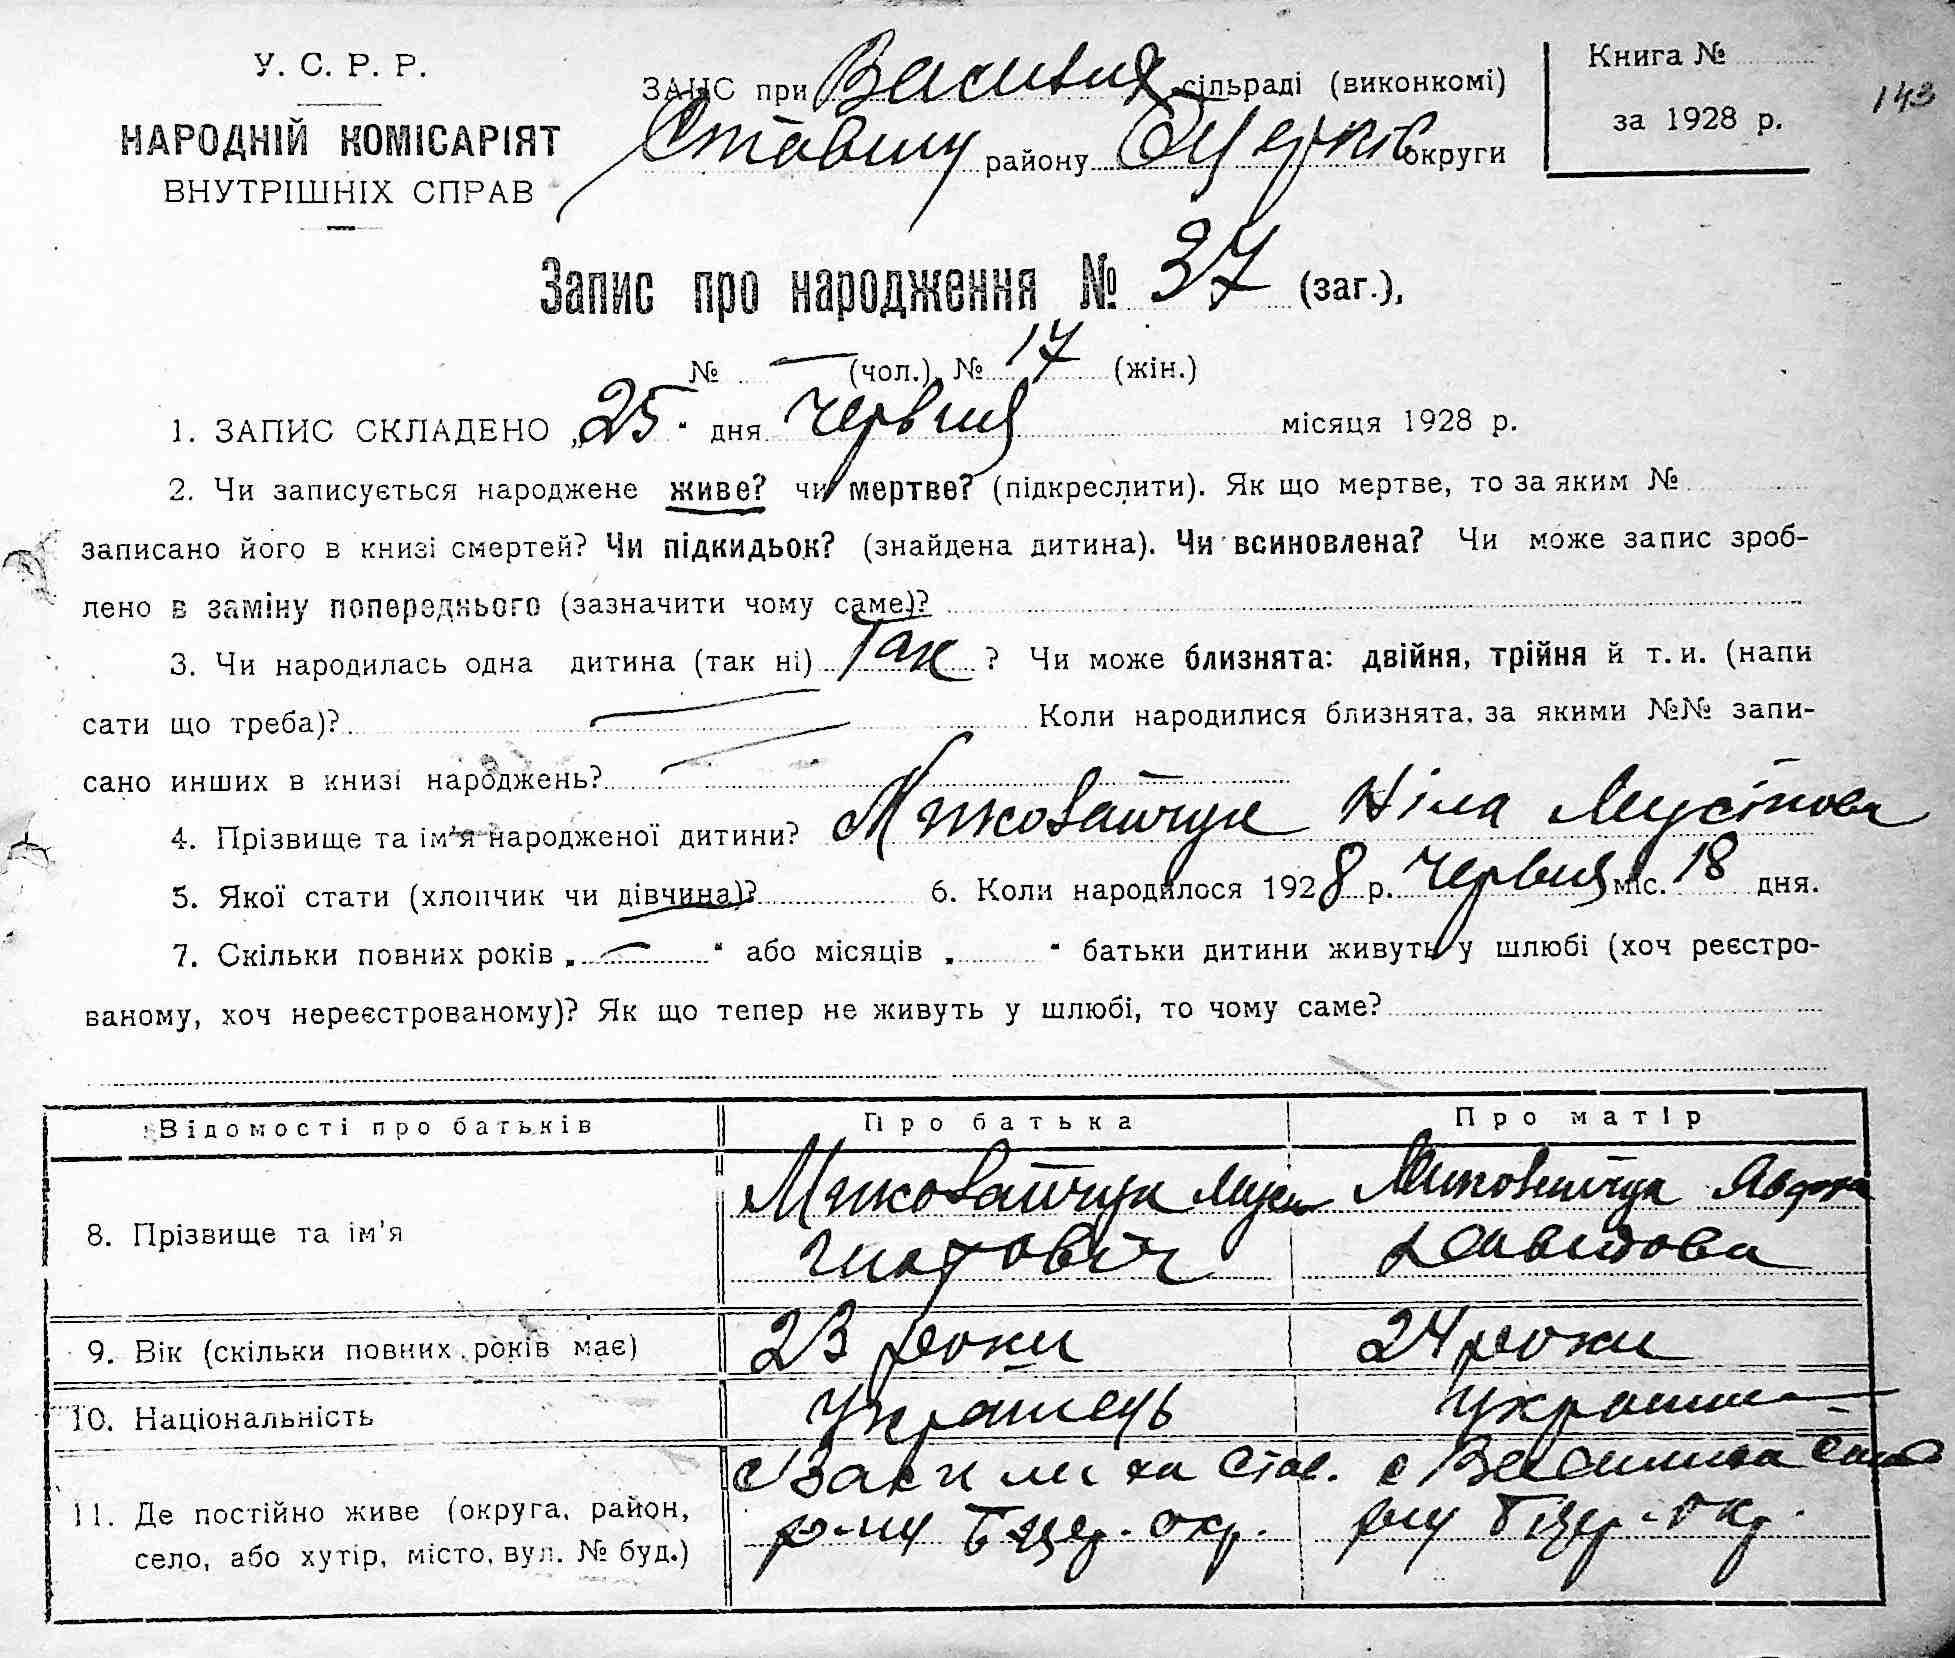 У. С. Р. Р.
НАРОДНІЙ КОМІСАРІЯТ
ВНУТРІШНІХ СПРАВ
ЗАГС при сільраді (виконкомі)
району округи
Книга №
за 1928 р.
143
Запис про народження № 37 (заг.),
№ — (чол.), № 17 (жін.)
1. ЗАПИС СКЛАДЕНО „25" дня червня місяця 1928 р.
2. Чи записується народжене живе? чи мертве? (підкреслити). Як що мертве, то за яким №
записано його в книзі смертей? Чи підкидьок? (знайдена дитина). Чи всиновлена? Чи може запис зроб-
лено в заміну попереднього (зазначити чому саме)?
3. Чи народилась одна дитина (так ні) Так ? Чи може близнята: двійня, трійня й т. и. (напи
сати що треба)? Коли народилися близнята, за якими №№ запи-
сано инших в книзі народжень?
4. Прізвище та ім'я народженої дитини? Ніла
5. Якої стати (хлопчик чи дівчина)? 6. Коли народилося 1928 р. червня міс. 18 дня.
7. Скільки повних років „ — " або місяців „ " батьки дитини живуть у шлюбі (хоч реєстро-
ваному, хоч нереєстрованому)? Як що тепер не живуть у шлюбі, то чому саме?
Відомості про батьків Про батька Про матір
8. Прізвище та ім'я
9. Вік (скільки повних років має) 23 роки 24 роки
10. Національність Українець
11. Де постійно живе (округа, район, с Став. с
село, або хутір, місто, вул. № буд.) р-ну Бцер. окр.